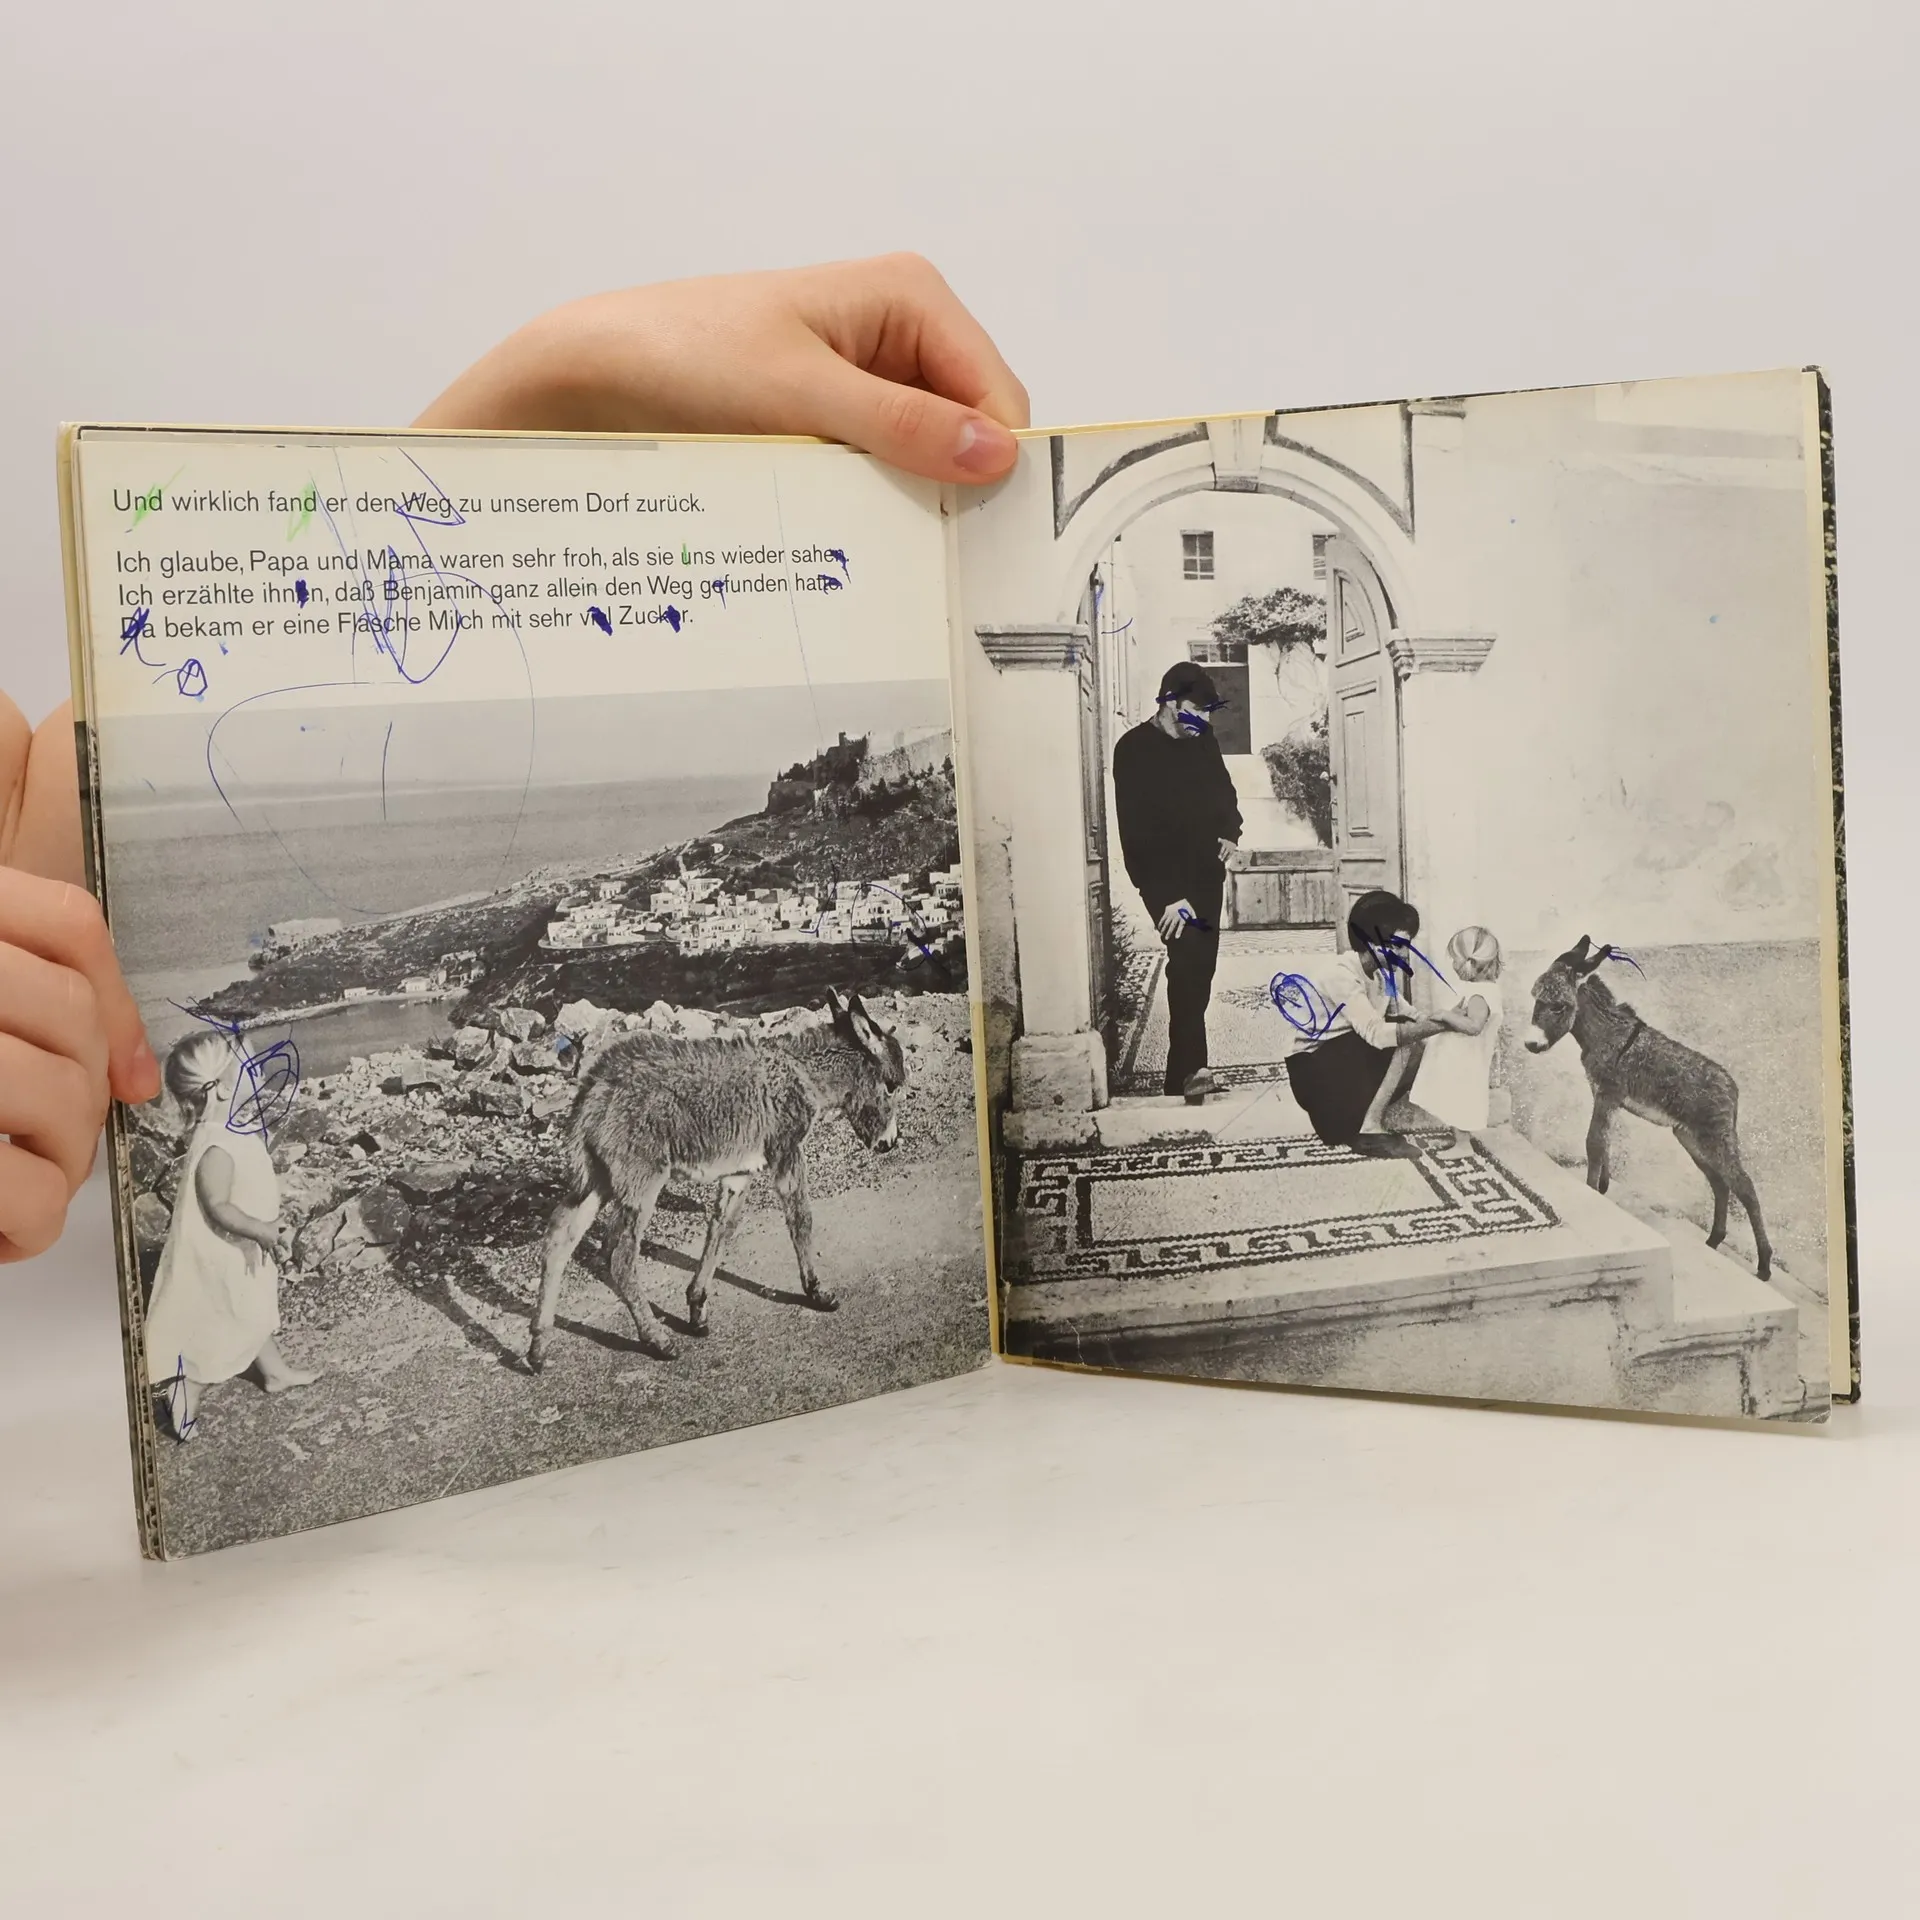 Und wirklich fand er den Weg zu unserem Dorf zurück.
Ich glaube, Papa und Mama waren sehr froh, als sie uns wieder sahen.
Ich erzählte ihnen, daß Benjamin ganz allein den Weg gefunden hatte.
Da bekam er eine Flasche Milch mit sehr viel Zucker.